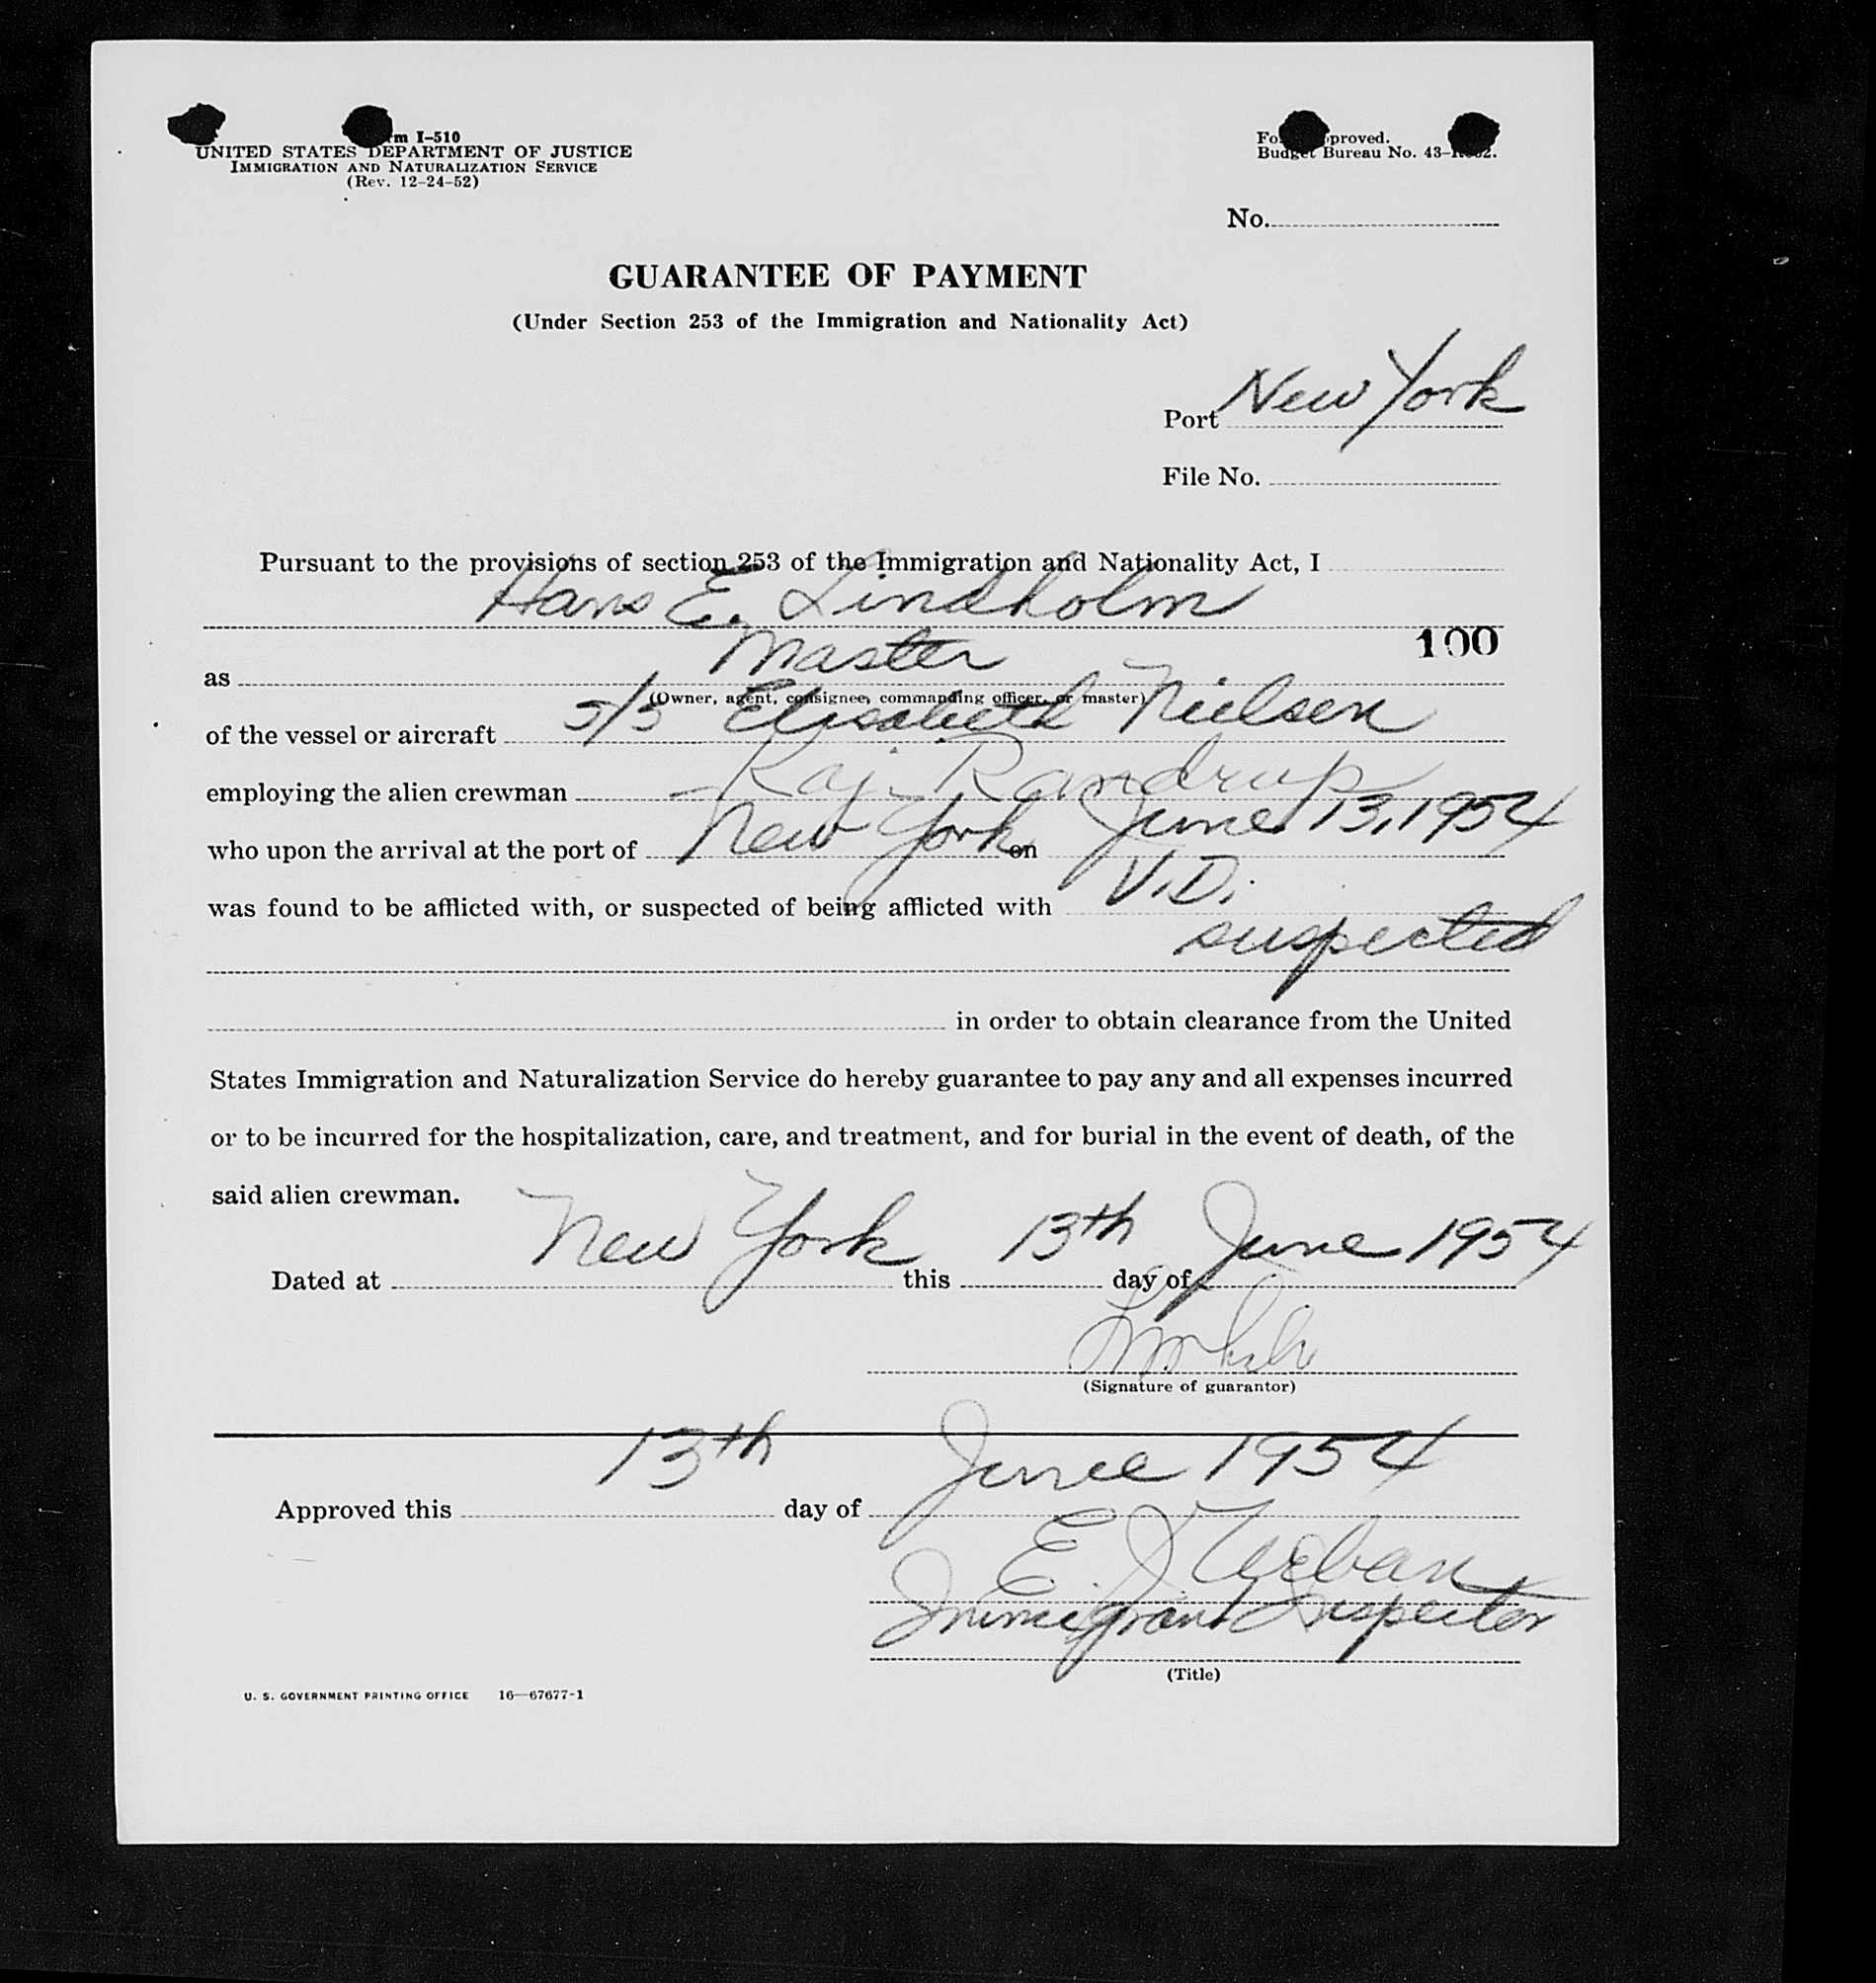 I-510
UNITED STATES DEPARTMENT OF JUSTICE
IMMIGRATION AND NATURALIZATION SERVICE
(Rev. 12-24-52)
Budget Bureau No.
No.
GUARANTEE OF PAYMENT
(Under Section 253 of the Immigration and Nationality Act)
Port New York
File No.
Pursuant to the provisions of section 253 of the Immigration and Nationality Act, I
Hans E. Lindholm
100
as Master
(Owner, agent, consignee, commanding officer, or master)
of the vessel or aircraft S/S Elisabeth Nielsen
employing the alien crewman Kaj Randrup
who upon the arrival at the port of New York on June 13, 1954
was found to be afflicted with, or suspected of being afflicted with V.D.
suspected
in order to obtain clearance from the United
States Immigration and Naturalization Service do hereby guarantee to pay any and all expenses incurred
or to be incurred for the hospitalization, care, and treatment, and for burial in the event of death, of the
said alien crewman.
Dated at New York this 13th day of June 1954
(Signature of guarantor)
Approved this 13th day of June 1954
E. J. Urban
Immigrant Inspector
(Title)
U. S. GOVERNMENT PRINTING OFFICE 16—67677-1